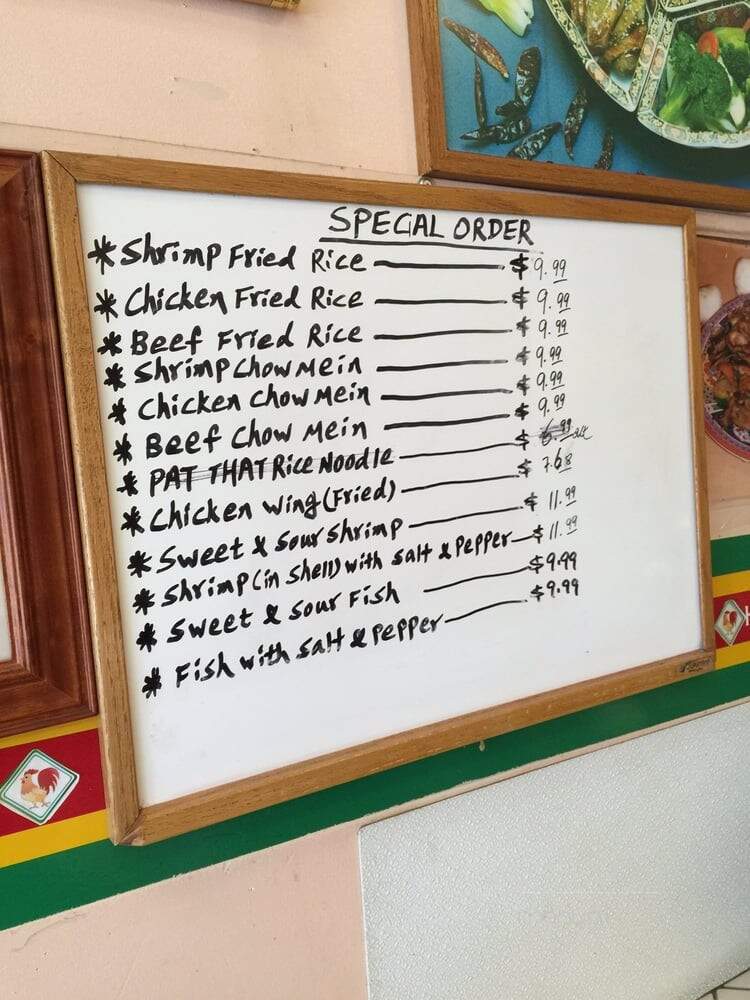 SPECIAL ORDER
* Shrimp Fried Rice — $ 9.99
* Chicken Fried Rice — $ 9.99
* Beef Fried Rice — $ 9.99
* Shrimp Chow Mein — $ 9.99
* Chicken Chow Mein — $ 9.99
* Beef Chow Mein — $ 9.99
* PAT THAT Rice Noodle — $ 6.99
* Chicken Wing (Fried) — $ 7.68
* Sweet & Sour Shrimp — $ 11.99
* Shrimp (in Shell) with Salt & Pepper — $ 11.99
* Sweet & Sour Fish — $ 9.99
* Fish with Salt & Pepper — $ 9.99